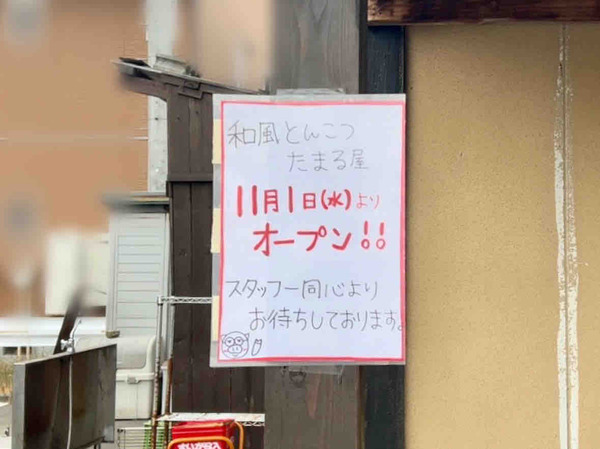 和風とんこつ
たまる屋
11月1日(水)より
オープン!!
スタッフ一同心より
お待ちしております。